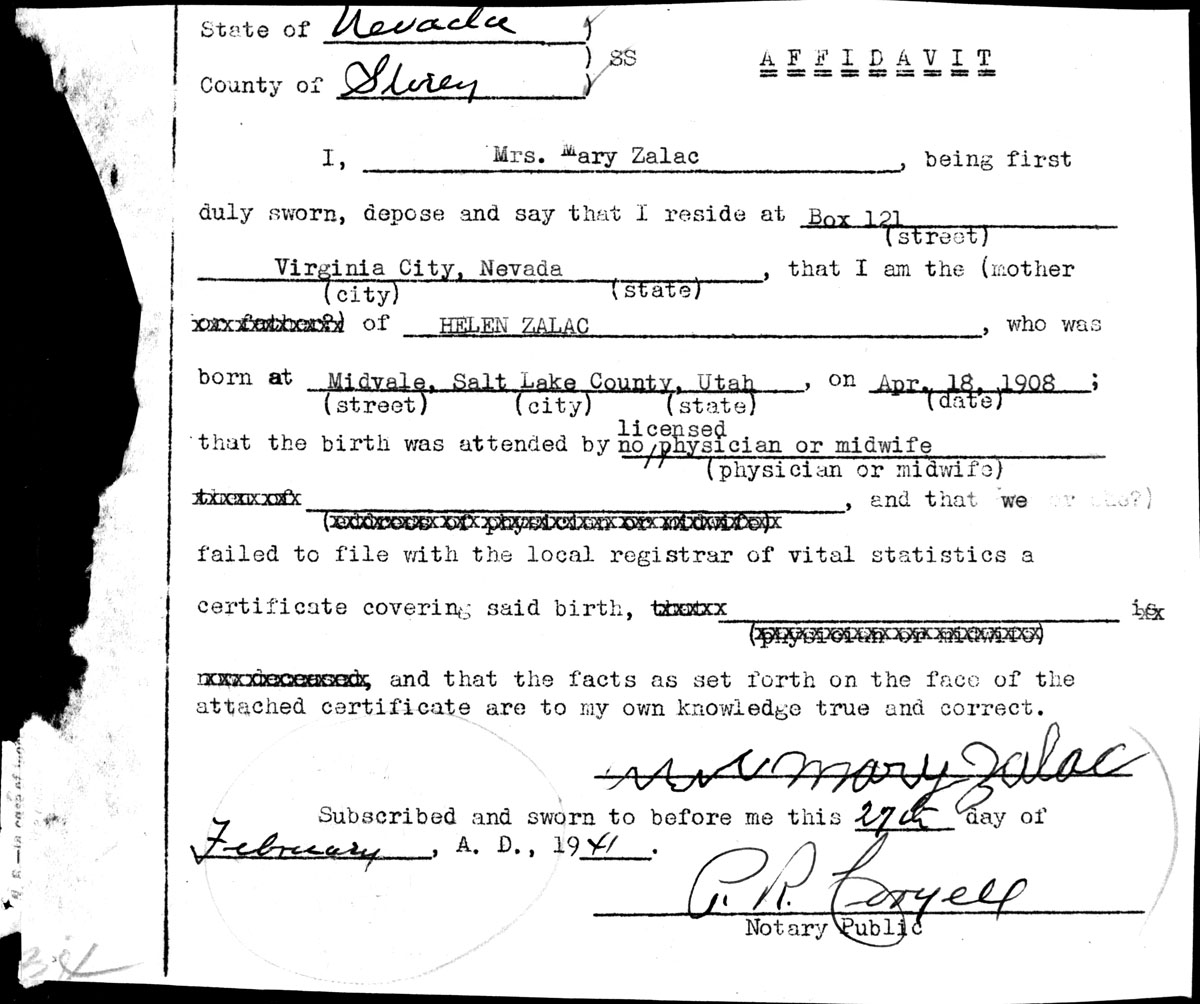 State of Nevada )
) SS
A F F I D A V I T
County of Storey )
I, Mrs. Mary Zalac, being first
duly sworn, depose and say that I reside at Box 121
(street)
Virginia City, Nevada, that I am the (mother
(city) (state)
or father?) of HELEN ZALAC, who was
born at Midvale, Salt Lake County, Utah, on Apr. 18, 1908;
(street) (city) (state) (date)
licensed
that the birth was attended by no physician or midwife
(physician or midwife)
, and that we or she?)
(address of physician or midwife)
failed to file with the local registrar of vital statistics a
certificate covering said birth, that is
(physician or midwife)
deceased, and that the facts as set forth on the face of the
attached certificate are to my own knowledge true and correct.
Mrs Mary Zalac
Subscribed and sworn to before me this 27th day of
February, A. D., 1941.
Coryell
Notary Public